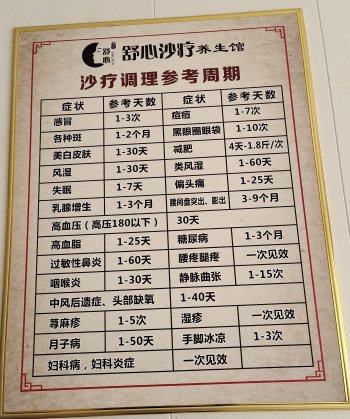 舒心
舒心沙疗养生馆
沙疗调理参考周期
症状 参考天数 症状 参考天数
感冒 1-3次 痘痘 1-7次
各种斑 1-2个月 黑眼圈眼袋 1-10次
美白皮肤 1-30天 减肥 4天-1.8斤/次
风湿 1-30天 类风湿 1-60天
失眠 1-7天 偏头痛 1-25天
乳腺增生 1-3个月 腰间盘突出、膨出 3-9个月
高血压（高压180以下） 30天
高血脂 1-25天 糖尿病 1-3个月
过敏性鼻炎 1-60天 腰疼腿疼 一次见效
咽喉炎 1-30天 静脉曲张 1-15次
中风后遗症、头部缺氧 1-40天
荨麻疹 1-5次 湿疹 一次见效
月子病 1-50天 手脚冰凉 1-3次
妇科病，妇科炎症 一次见效